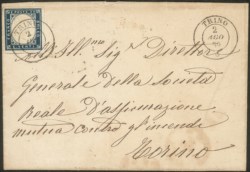 TRINO
2
AGO
TRINO
All Ill.mo Sig.r Direttore
Generale della Società
Reale d'assicurazione
mutua contro gl'incendi
Torino